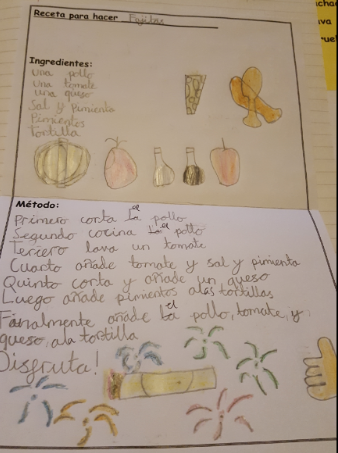 Receta para hacer Fajitas
Ingredientes:
una pollo
una tomate
una queso
Sal y pimienta
Pimientos
Tortilla
Método:
Primero corta la el pollo
Segundo cocina la el pollo
Tercero lava un tomate
Cuarto añade tomate y sal y pimienta
Quinto corta y añade un queso
Luego añade pimentos a las tortillas
Finalmente añade la el pollo, tomate, y
queso, a la tortilla
Disfruta!